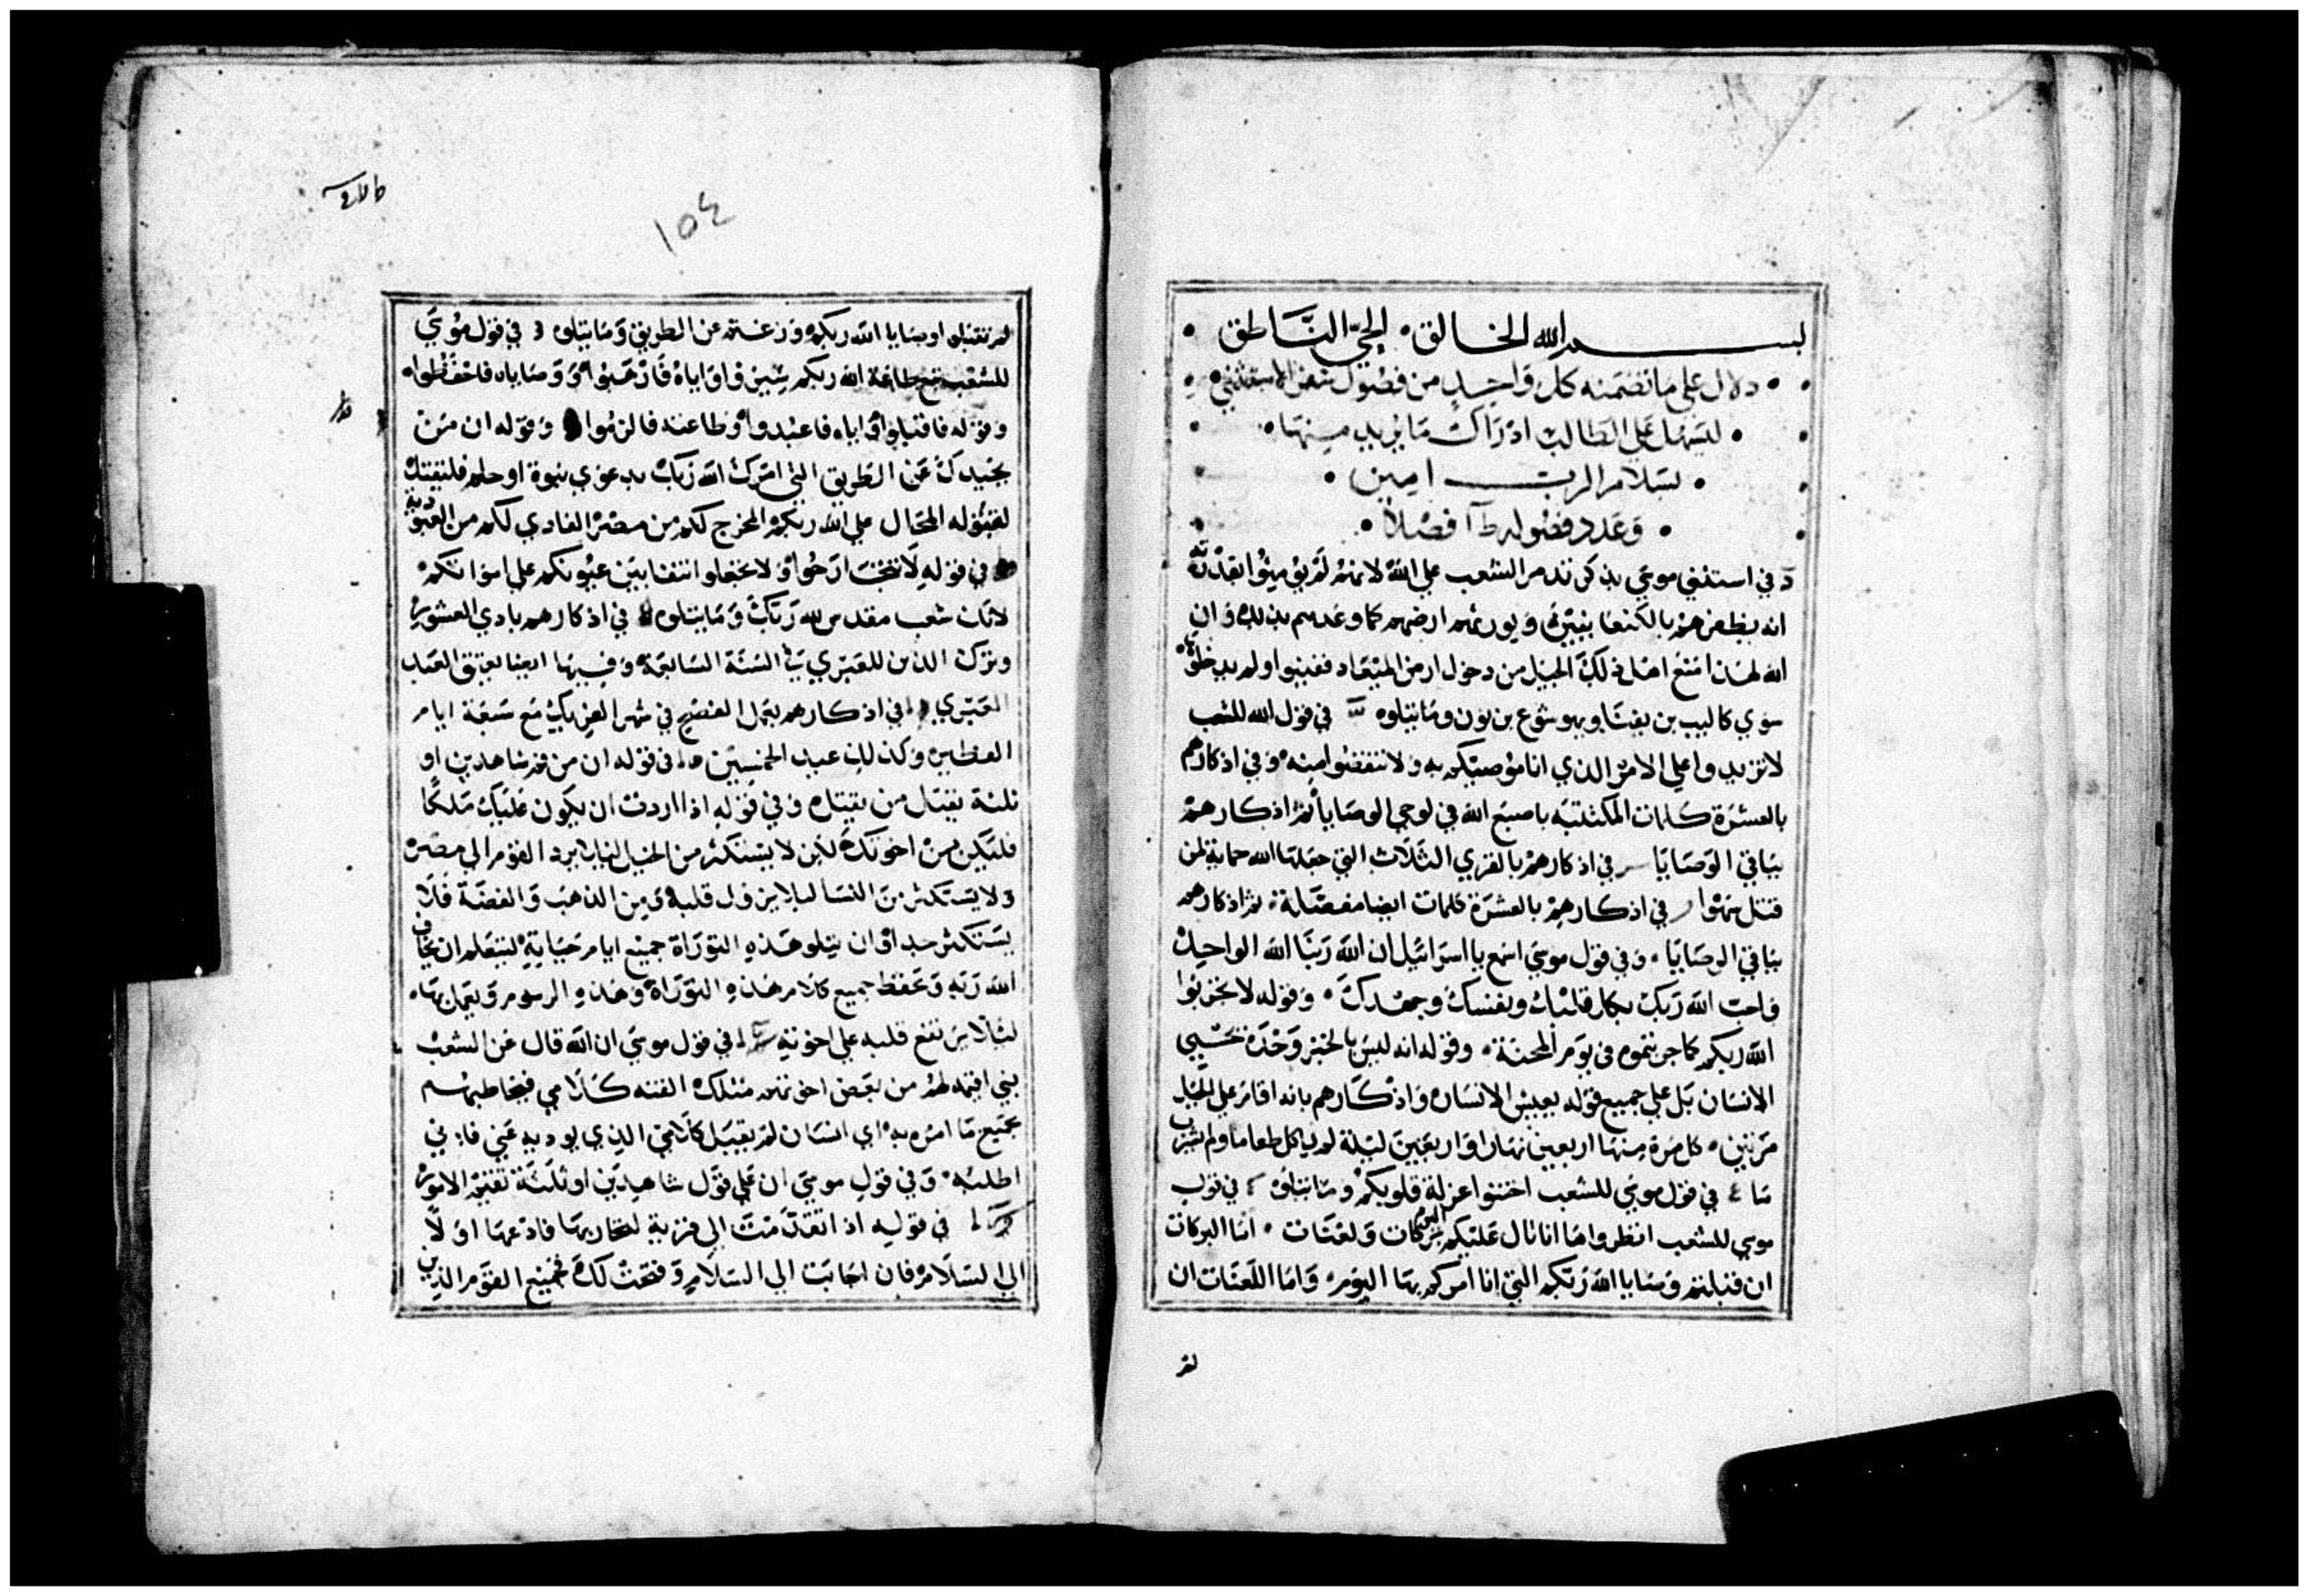 بسم الله الخالق • الحي الناطق •
• دلال علي ما تضمنه كل واحد من فصول سفر الاستثني •
• ليسهل علي الطالب ادراك ما يريد منها •
• بسلام الرب امين •
• وعدد فصوله فصلاً •
في استثني موسي بذكر تذمر الشعب علي الله لانهم لم يؤمنوا بقدرته
انه يظفرهم بالكنعانيين ويورثهم ارضهم كما وعدهم بذلك وان
الله لهذا منع اهل ذلك الجيل من دخول ارض الميعاد ففنيوا ولم يدخلوها
سوي كالب بن يفنا ويهوشوع بن نون وما يتلوه في قول الله للشعب
لا تزيدوا علي الامر الذي انا موصيكم به ولا تنقصوا منه وفي اذكارهم
بالعشرة كلمات المكتتبه باصبع الله في لوحي الوصايا ثم اذكارهم
بباقي الوصايا في اذكارهم بالقري الثلاث التي جعلها الله حماية لمن
قتل سهوا في اذكارهم بالعشرة كلمات ايضا مفصلة • ثم اذكارهم
بباقي الوصايا • وفي قول موسي اسمع يا اسرائيل ان الله ربنا الله الواحد
فاحب الله ربك بكل قلبك ونفسك وجهدك • وقوله لا تجربوا
الله ربكم كما جربتموه في يوم المحنة • وقوله انه ليس بالخبز وحده يحيي
الانسان بل علي جميع قوله يعيش الانسان واذكارهم بانه اقام علي الجبل
مرتين • كل مرة منها اربعين نهارا واربعين ليلة لم ياكل طعاما ولم يشرب
ما في قول موسي للشعب اختنوا عزلة قلوبكم وما يتلوه في قول
موسي للشعب انظروا ها انا تال عليكم اليوم بركات ولعنات • اما البركات
ان قبلتم وصايا الله ربكم التي انا امركم بها اليوم • واما اللعنات ان
لم
١٥٤
لم تقبلوا وصايا الله ربكم وزغتم عن الطريق وما يتلوه في قول موسي
للشعب مع طاعة الله ربكم سيروا واياه فارهبوا ووصاياه فاحفظوا •
وقوله فاقبلوا واياه فاعبدوا وطاعته فالزموا وقوله ان من
يحيدك عن الطريق التي امرك الله ربك بدعوي نبوة او حلم فليقتل
لقوله المحال علي الله ربكم المخرج لكم من مصر الفادي لكم من العبودية
في قوله لا تنخشا رخوا ولا تجعلوا انتفا بين عيونكم علي امواتكم
لانك شعب مقدس لله ربك وما يتلوه في اذكارهم بادي العشور
وترك الدين للعبري في السنة السابعة وفيها ايضا يعتق العبد
العبري في اذكارهم بعمل الفصح في شهر الفريك مع سبعة ايام
الفطير وكذلك عيد الخمسين في قوله ان من فم شاهدين او
ثلثة يقتل من يقتل وفي قوله اذا اردت ان يكون عليك ملكا
فليكن من اخوتك لكن لا يستكثر من الخيل ليلا يرد القوم الي مصر
ولا يستكثر من النسا ليلا يزول قلبه ومن الذهب والفضة فلا
يستكثر جدا وان يتلو هذه التوراة جميع ايام حياته ليتعلم ان يخاف
الله ربه وتحفظ جميع كلام هذه التوراة وهذه الرسوم ويعمل بها •
ليلا يرتفع قلبه علي اخوته في قول موسي ان الله قال عن الشعب
نبي اقيمه لهم من بعض اخوتهم مثلك القنه كلامي فيخاطبهم
بجميع ما امره به اي انسان لم يقبل كلامي الذي يوديه عني فاني
اطلبه • وفي قول موسي ان علي قول شاهدين او ثلثة تقيم الامور
في قوله اذا تقدمت الي قرية لتحاربها فادعها اولاً
الي السلام فان اجابت الي السلام وفتحت لك فجميع القوم الذين